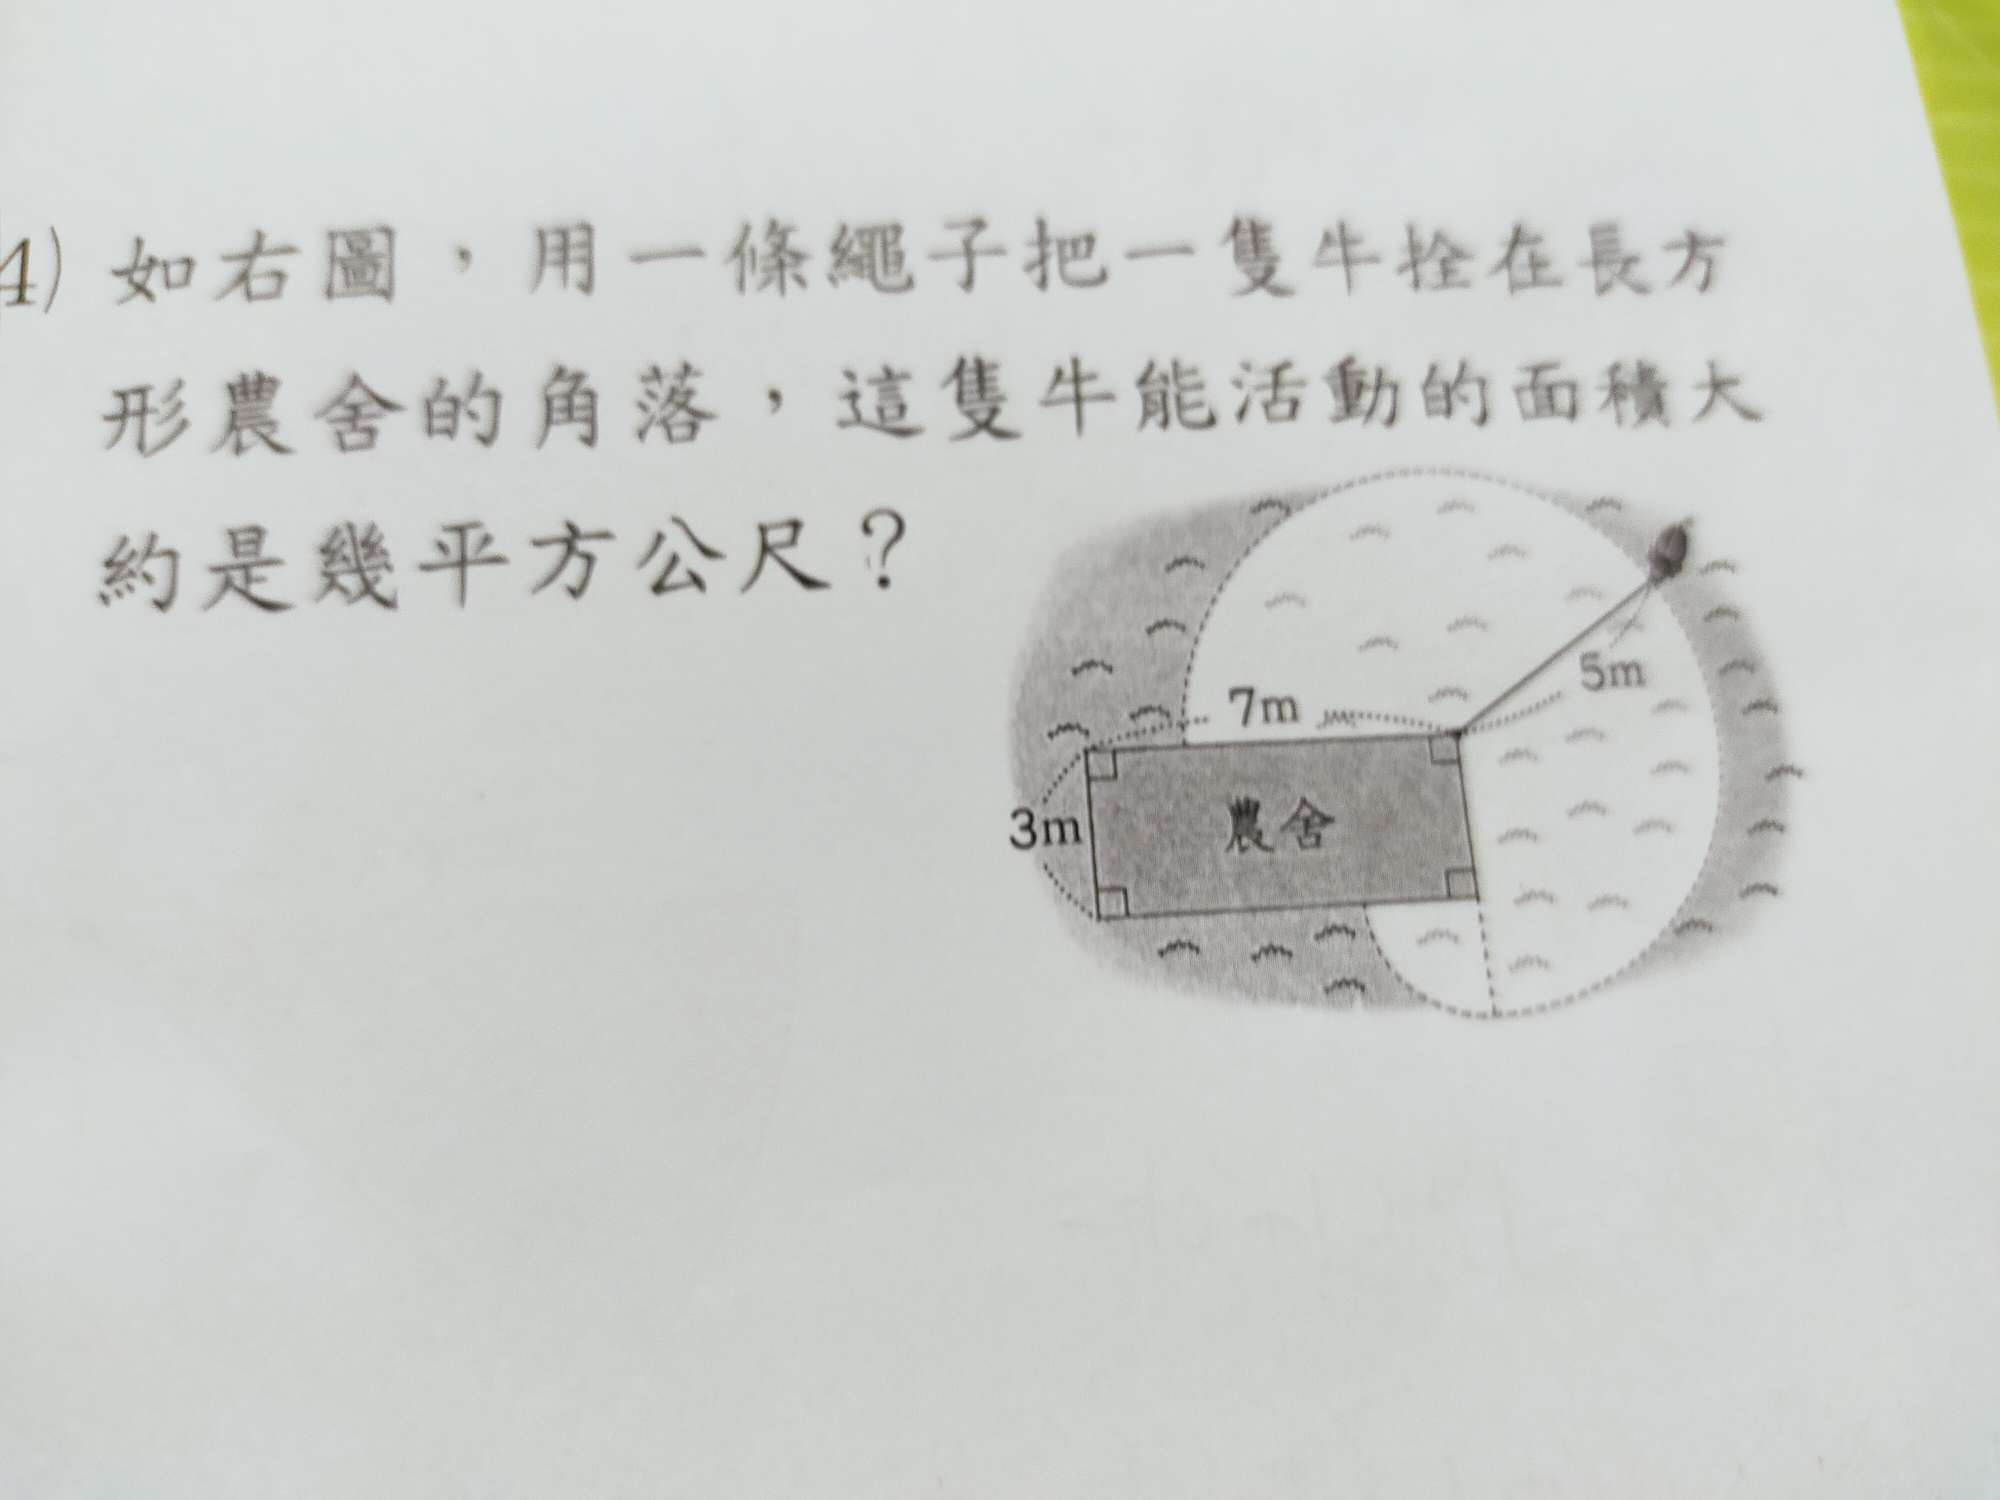 4) 如右圖，用一條繩子把一隻牛拴在長方
形農舍的角落，這隻牛能活動的面積大
約是幾平方公尺？
5m
7m
3m
農舍